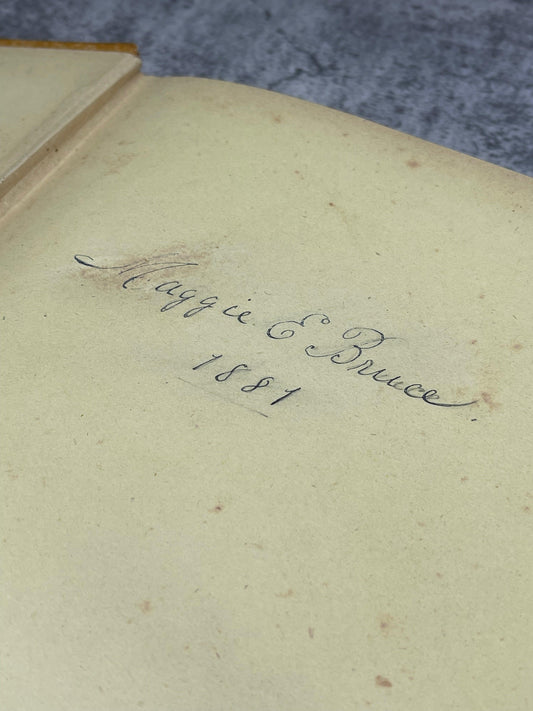 Maggie E Bruce
1881